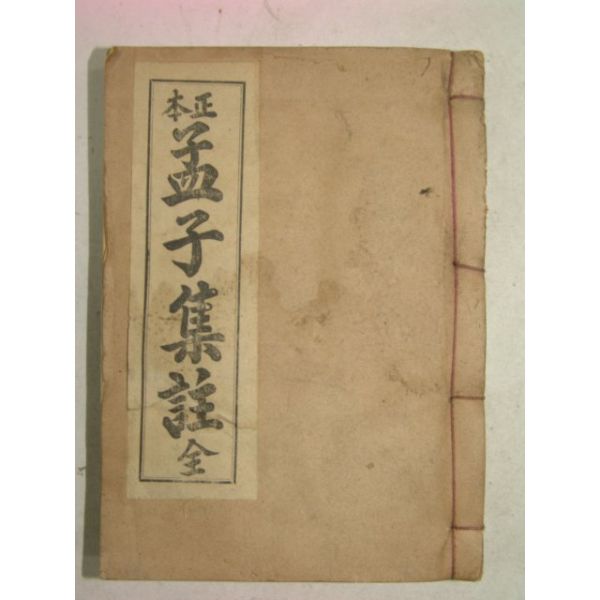 正本
孟子集註全